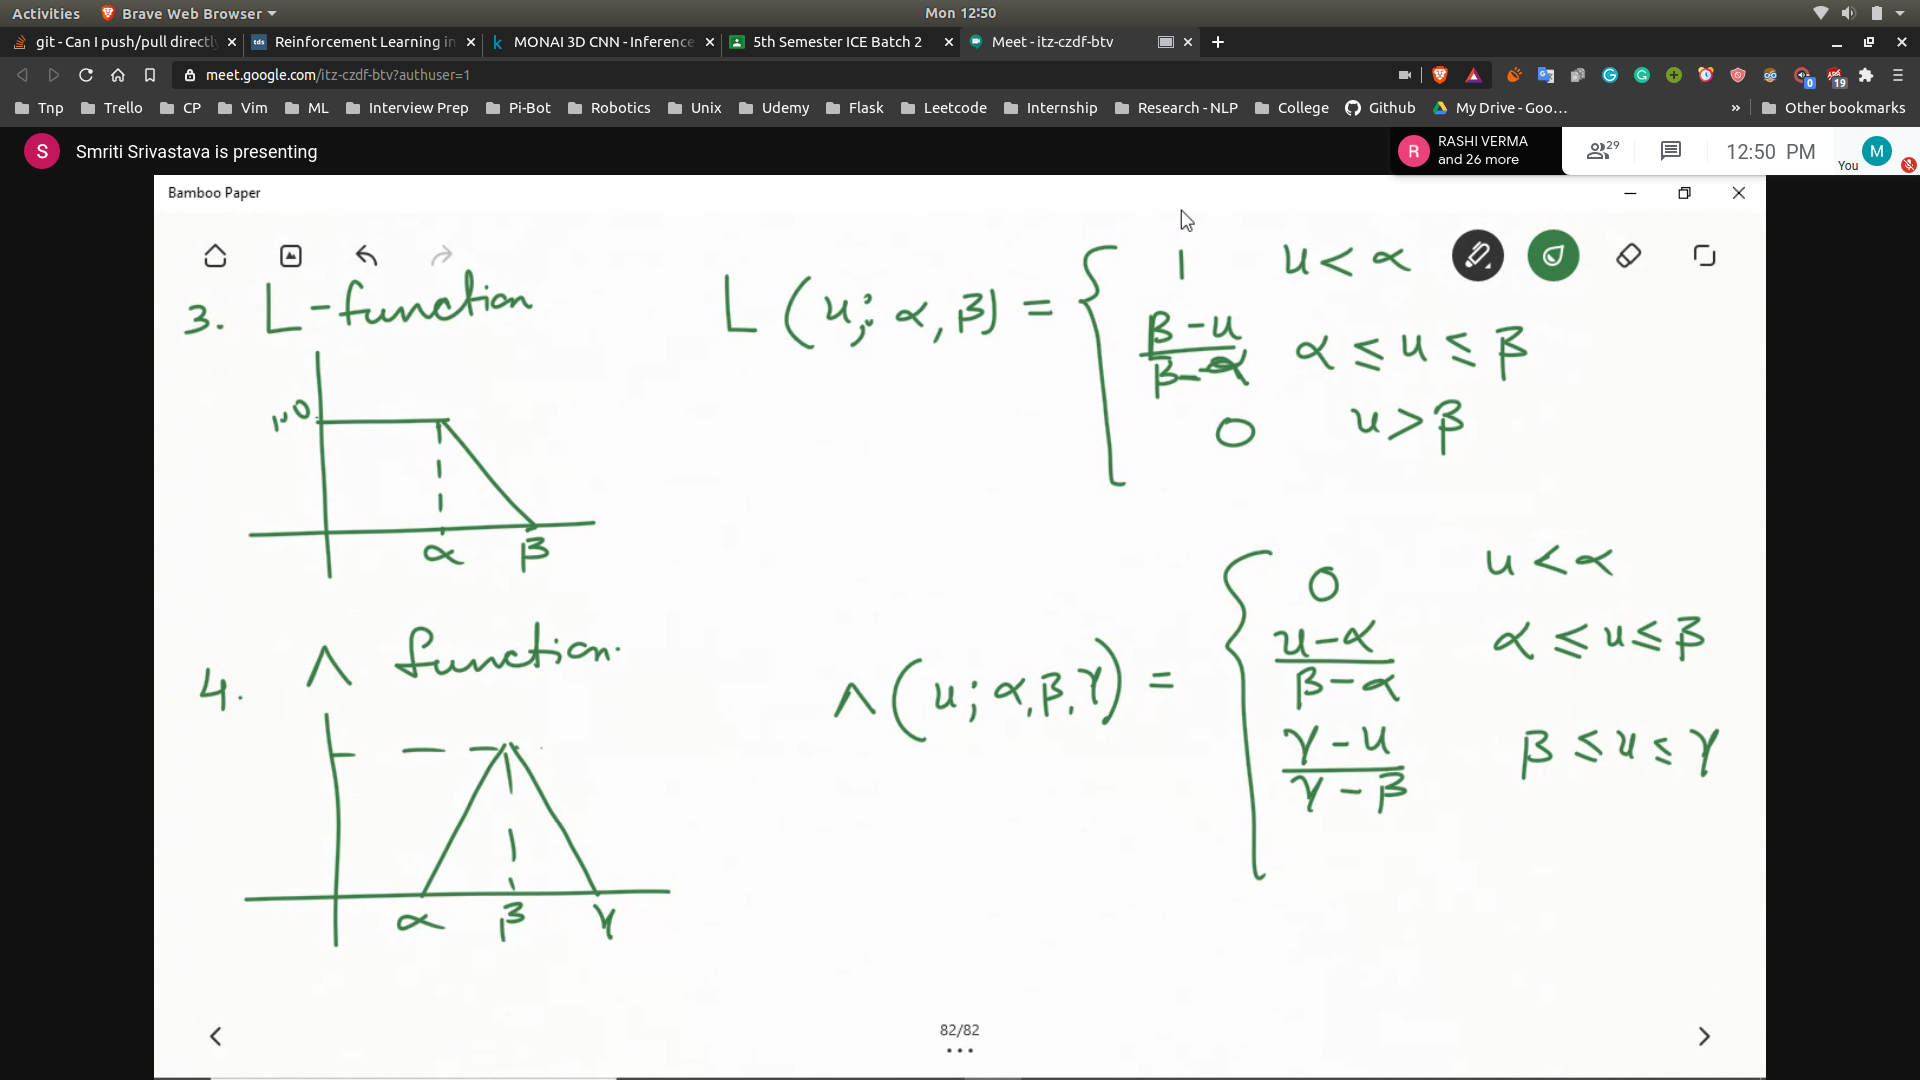 Activities Brave Web Browser Mon 12:50
git - Can I push/pull directly Reinforcement Learning in MONAI 3D CNN - Inference 5th Semester ICE Batch 2 Meet - itz-czdf-btv
meet.google.com/itz-czdf-btv?authuser=1 0 19
Tnp Trello CP Vim ML Interview Prep Pi-Bot Robotics Unix Udemy Flask Leetcode Internship Research - NLP College Github My Drive - Goo... » Other bookmarks
S Smriti Srivastava is presenting R RASHI VERMA and 26 more 29 12:50 PM You M
Bamboo Paper
3. L-function
L (u; α, β) = {
1 u < α
β-u / β-α α ≤ u ≤ β
0 u > β
1.0
α β
4. Λ function.
Λ (u; α, β, γ) = {
0 u < α
u-α / β-α α ≤ u ≤ β
γ-u / γ-β β ≤ u ≤ γ
α β γ
82/82